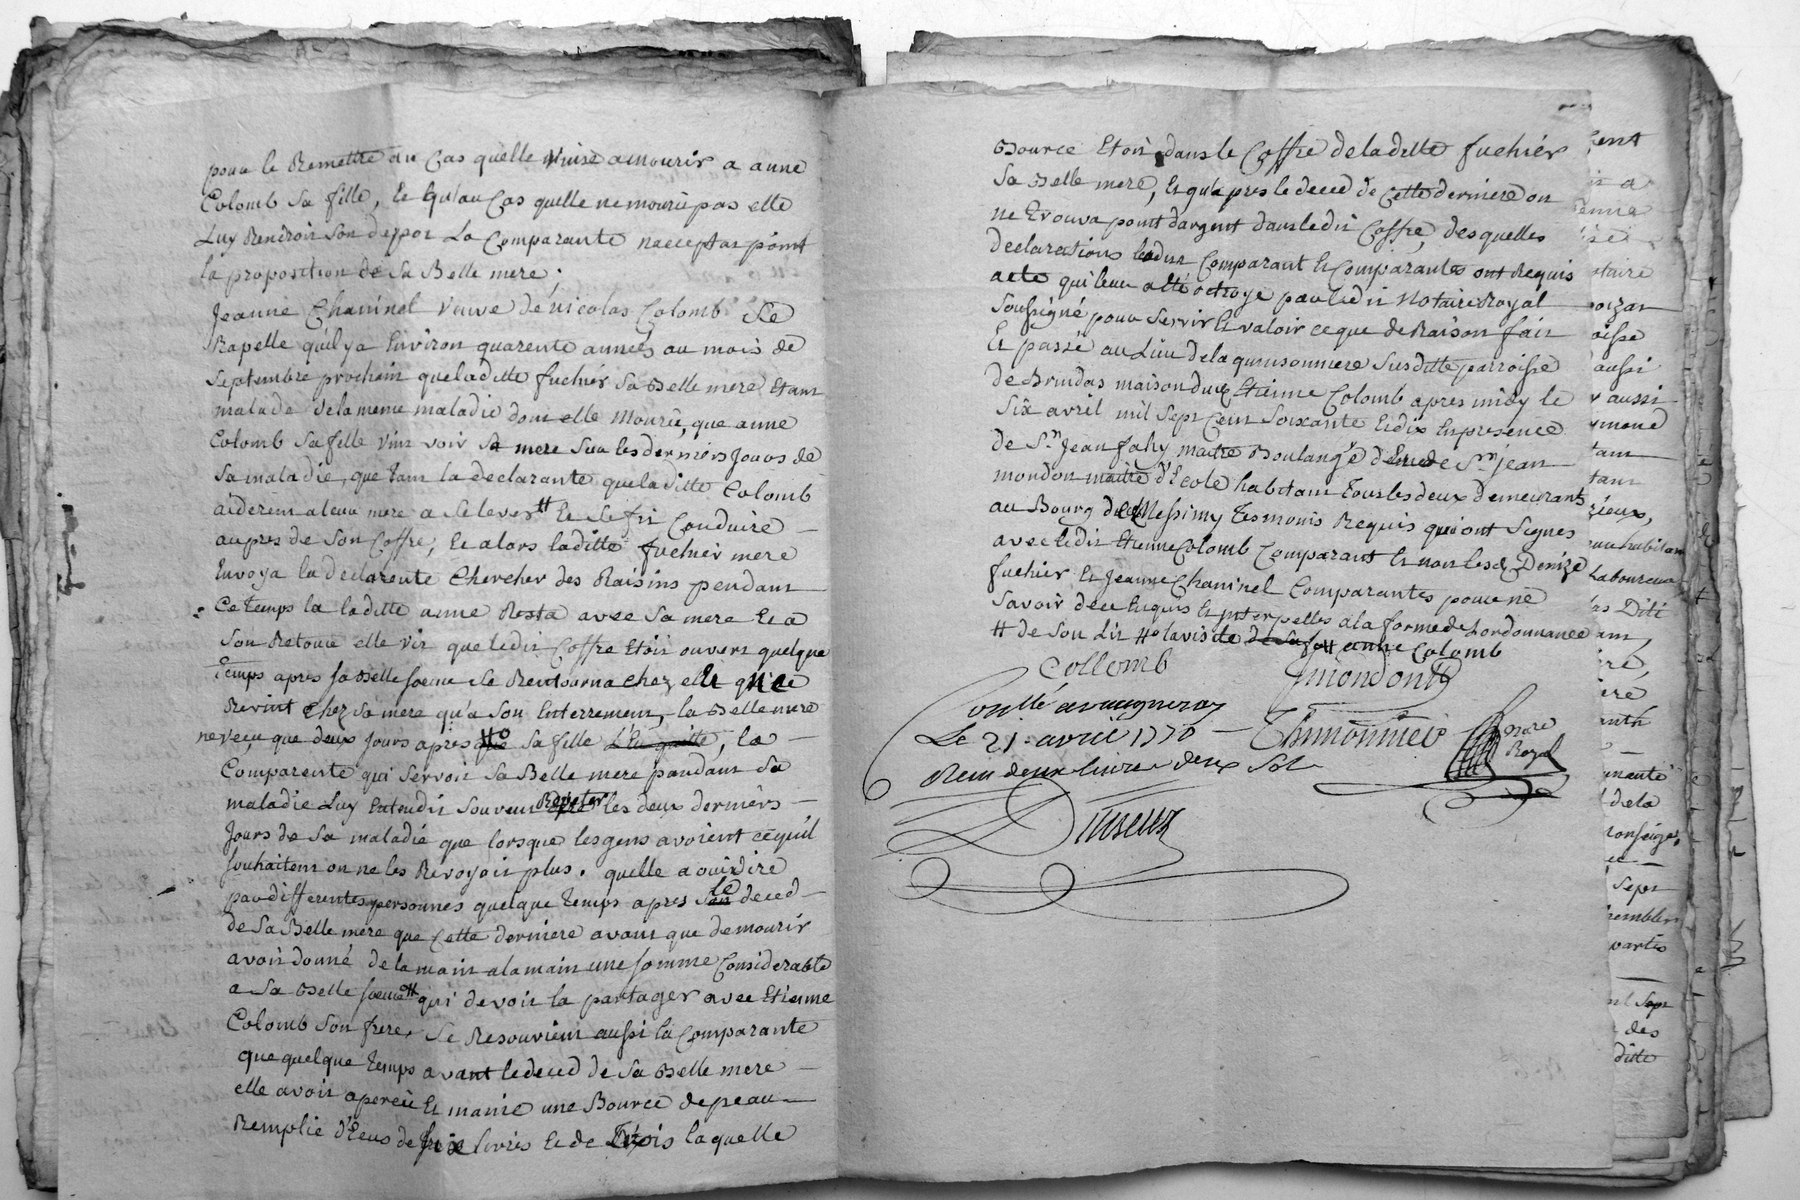 pour le Remettre au Cas quelle vinse a mourir a anne
Colomb sa fille, Et qu'au Cas quelle ne mourut pas elle
Luy Rendroit son depot La Comparante n'acceptat point
la proposition de sa Belle mere.
Jeanne Chaninel veuve de nicolas Colomb se
Rapelle qu'il ya Environ quarente années au mois de
septembre prochain que laditte fuchier sa Belle mere Etant
malade de la meme maladie dont elle mourut, que anne
Colomb sa fille vint voir sa mere sur les derniers Jours de
sa maladie, que tant la declarante que laditte Colomb
aiderent a leur mere a se lever # Et se fit Conduire
aupres de son Coffre, Et alors laditte fuchier mere
Envoya la declarente Chercher des Raisins pendant
Ce temps la laditte anne Resta avec sa mere Et a
son Retour elle vit que ledit Coffre Etoit ouvert quelque
Temps apres sa Belle soeur se Rentourna chez elle qu ne
Revint Chez sa mere qu'a son Enterrement, la Belle mere
ne vecu que deux Jours apres #o sa fille, la
Comparente qui servoit sa Belle mere pandant sa
maladie Luy Entendit souvent Repeter les deux derniers
Jours de sa maladie que lorsque les gens avoient ce qu'il
souhaitent on ne les Revoyoit plus. quelle a ouir dire
par differentes personnes quelque temps apres le deced
de sa Belle mere que Cette derniere avant que de mourir
avoit donné de la main a la main une somme Considerable
a sa Belle soeur # qui devoit la partager avec Etienne
Colomb son frere. se Resouvient aussi la Comparante
que quelque temps avant le deced de sa Belle mere
elle avoit apercu Et manié une Bource de peau
Remplie d'Ecus de six livres Et de trois laquelle
Bource Etoit dans le Coffre de laditte fuchier
sa Belle mere, Et qu'apres le deced de Cette derniere on
ne trouva point dargent dans ledit Coffre, des quelles
declarations ledit Comparant Et Comparantes ont Requis
acte qui leur a été octroyé par ledit Notaire Royal
soussigné pour servir Et valoir ce que de Raison fait
Et passé au Lieu de la quinsonniere susditte parroisse
de Brindas maison dud Etienne Colomb apres midy le
six avril mil sept Cent soixante Et dix En presence
de Sr. Jean fahy maitre Boulangé Et de Sr. Jean
mondon maitre d'Ecole habitant tous les deux demeurants
au Bourg de Messimy temoins Requis qui ont signes
avec ledit Etienne Colomb Comparant Et non lesd Denize
fuchier Et Jeanne Chaninel Comparantes pour ne
savoir de ce Enquis Et interpelles a la forme de Lordonnance
# de son Lit #o la visite # anne Colomb
Collomb Jmondon
Conllé a vaugneray
Le 21. avril 1770 Thimonnier Notre
Royal
Recu deux livres deux Sol